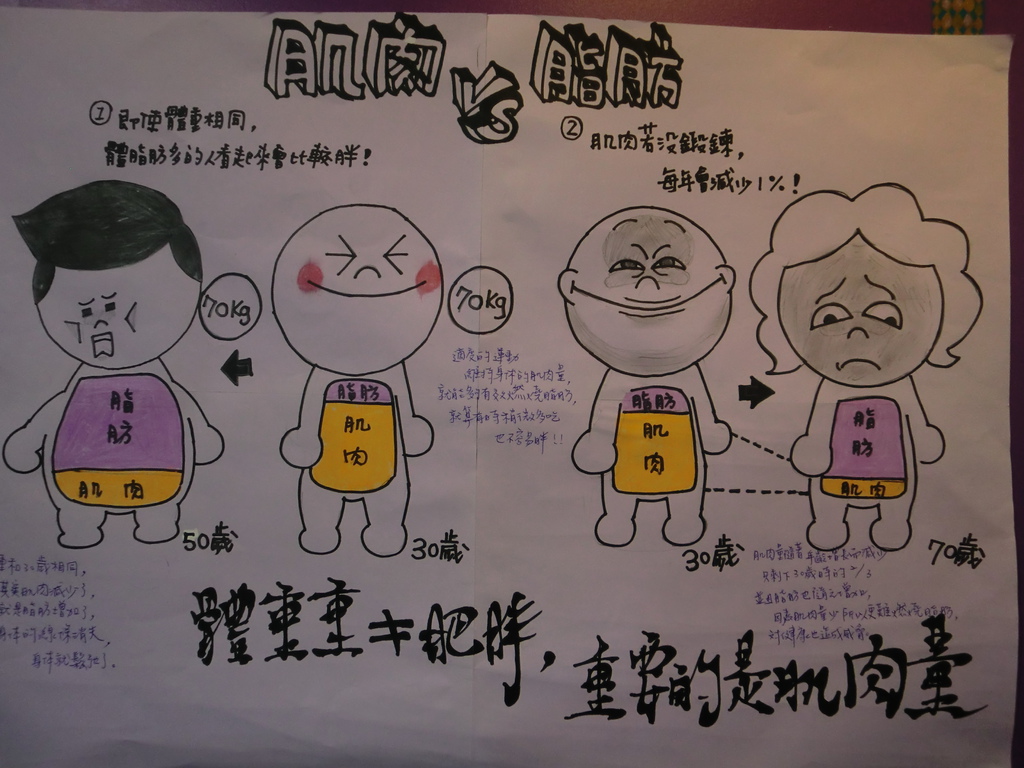 肌肉 VS 脂肪
① 即使體重相同，
體脂肪多的人看起來會比較胖！
② 肌肉若沒鍛鍊，
每年會減少1%！
70kg
70kg
脂肪
肌肉
50歲
脂肪
肌肉
30歲
適度的運動
維持身體的肌肉量，
就能夠有效燃燒脂肪，
就算有時稍微多吃
也不容易胖!!
脂肪
肌肉
30歲
脂肪
肌肉
70歲
肌肉量隨著年齡增長而減少
只剩下30歲時的2/3
並且脂肪也隨之增加，
因為肌肉量少所以更難燃燒脂肪，
對健康也造成威脅。
重和30歲相同，
肌肉減少了，
脂肪增加了，
身體就鬆弛了。
體重重≠肥胖，
重要的是肌肉量